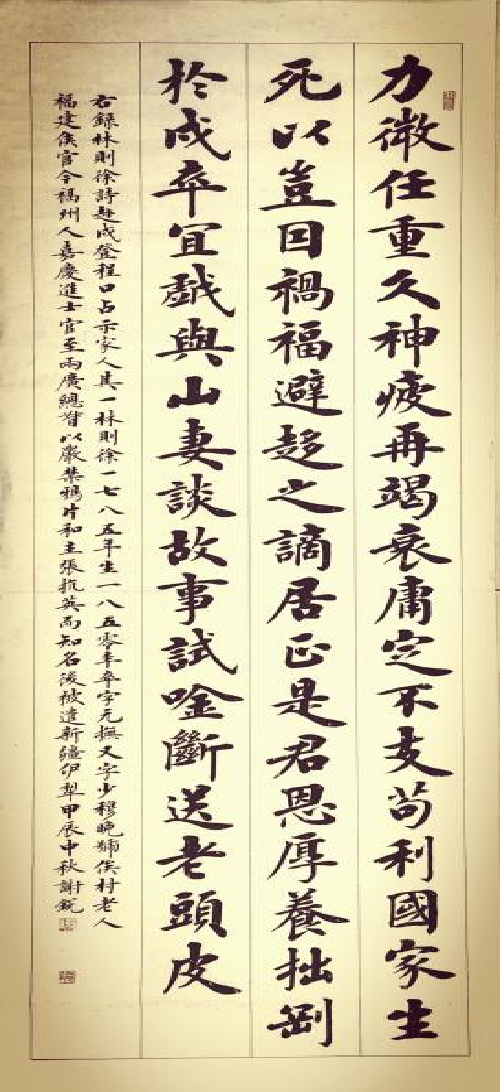 力微任重久神疲再竭衰庸定不支苟利國家生
死以豈因禍福避趍之謫居正是君恩厚養拙剛
於戍卒宜戲與山妻談故事試唫斷送老頭皮
右錄林則徐詩赴戍登程口占示家人其一林則徐一七八五年生一八五零年卒字元撫又字少穆晚號俟村老人
福建侯官今福州人嘉慶進士官至兩廣總督以嚴禁鴉片和主張抗英而知名後被遣新疆伊犁甲辰中秋謝銳